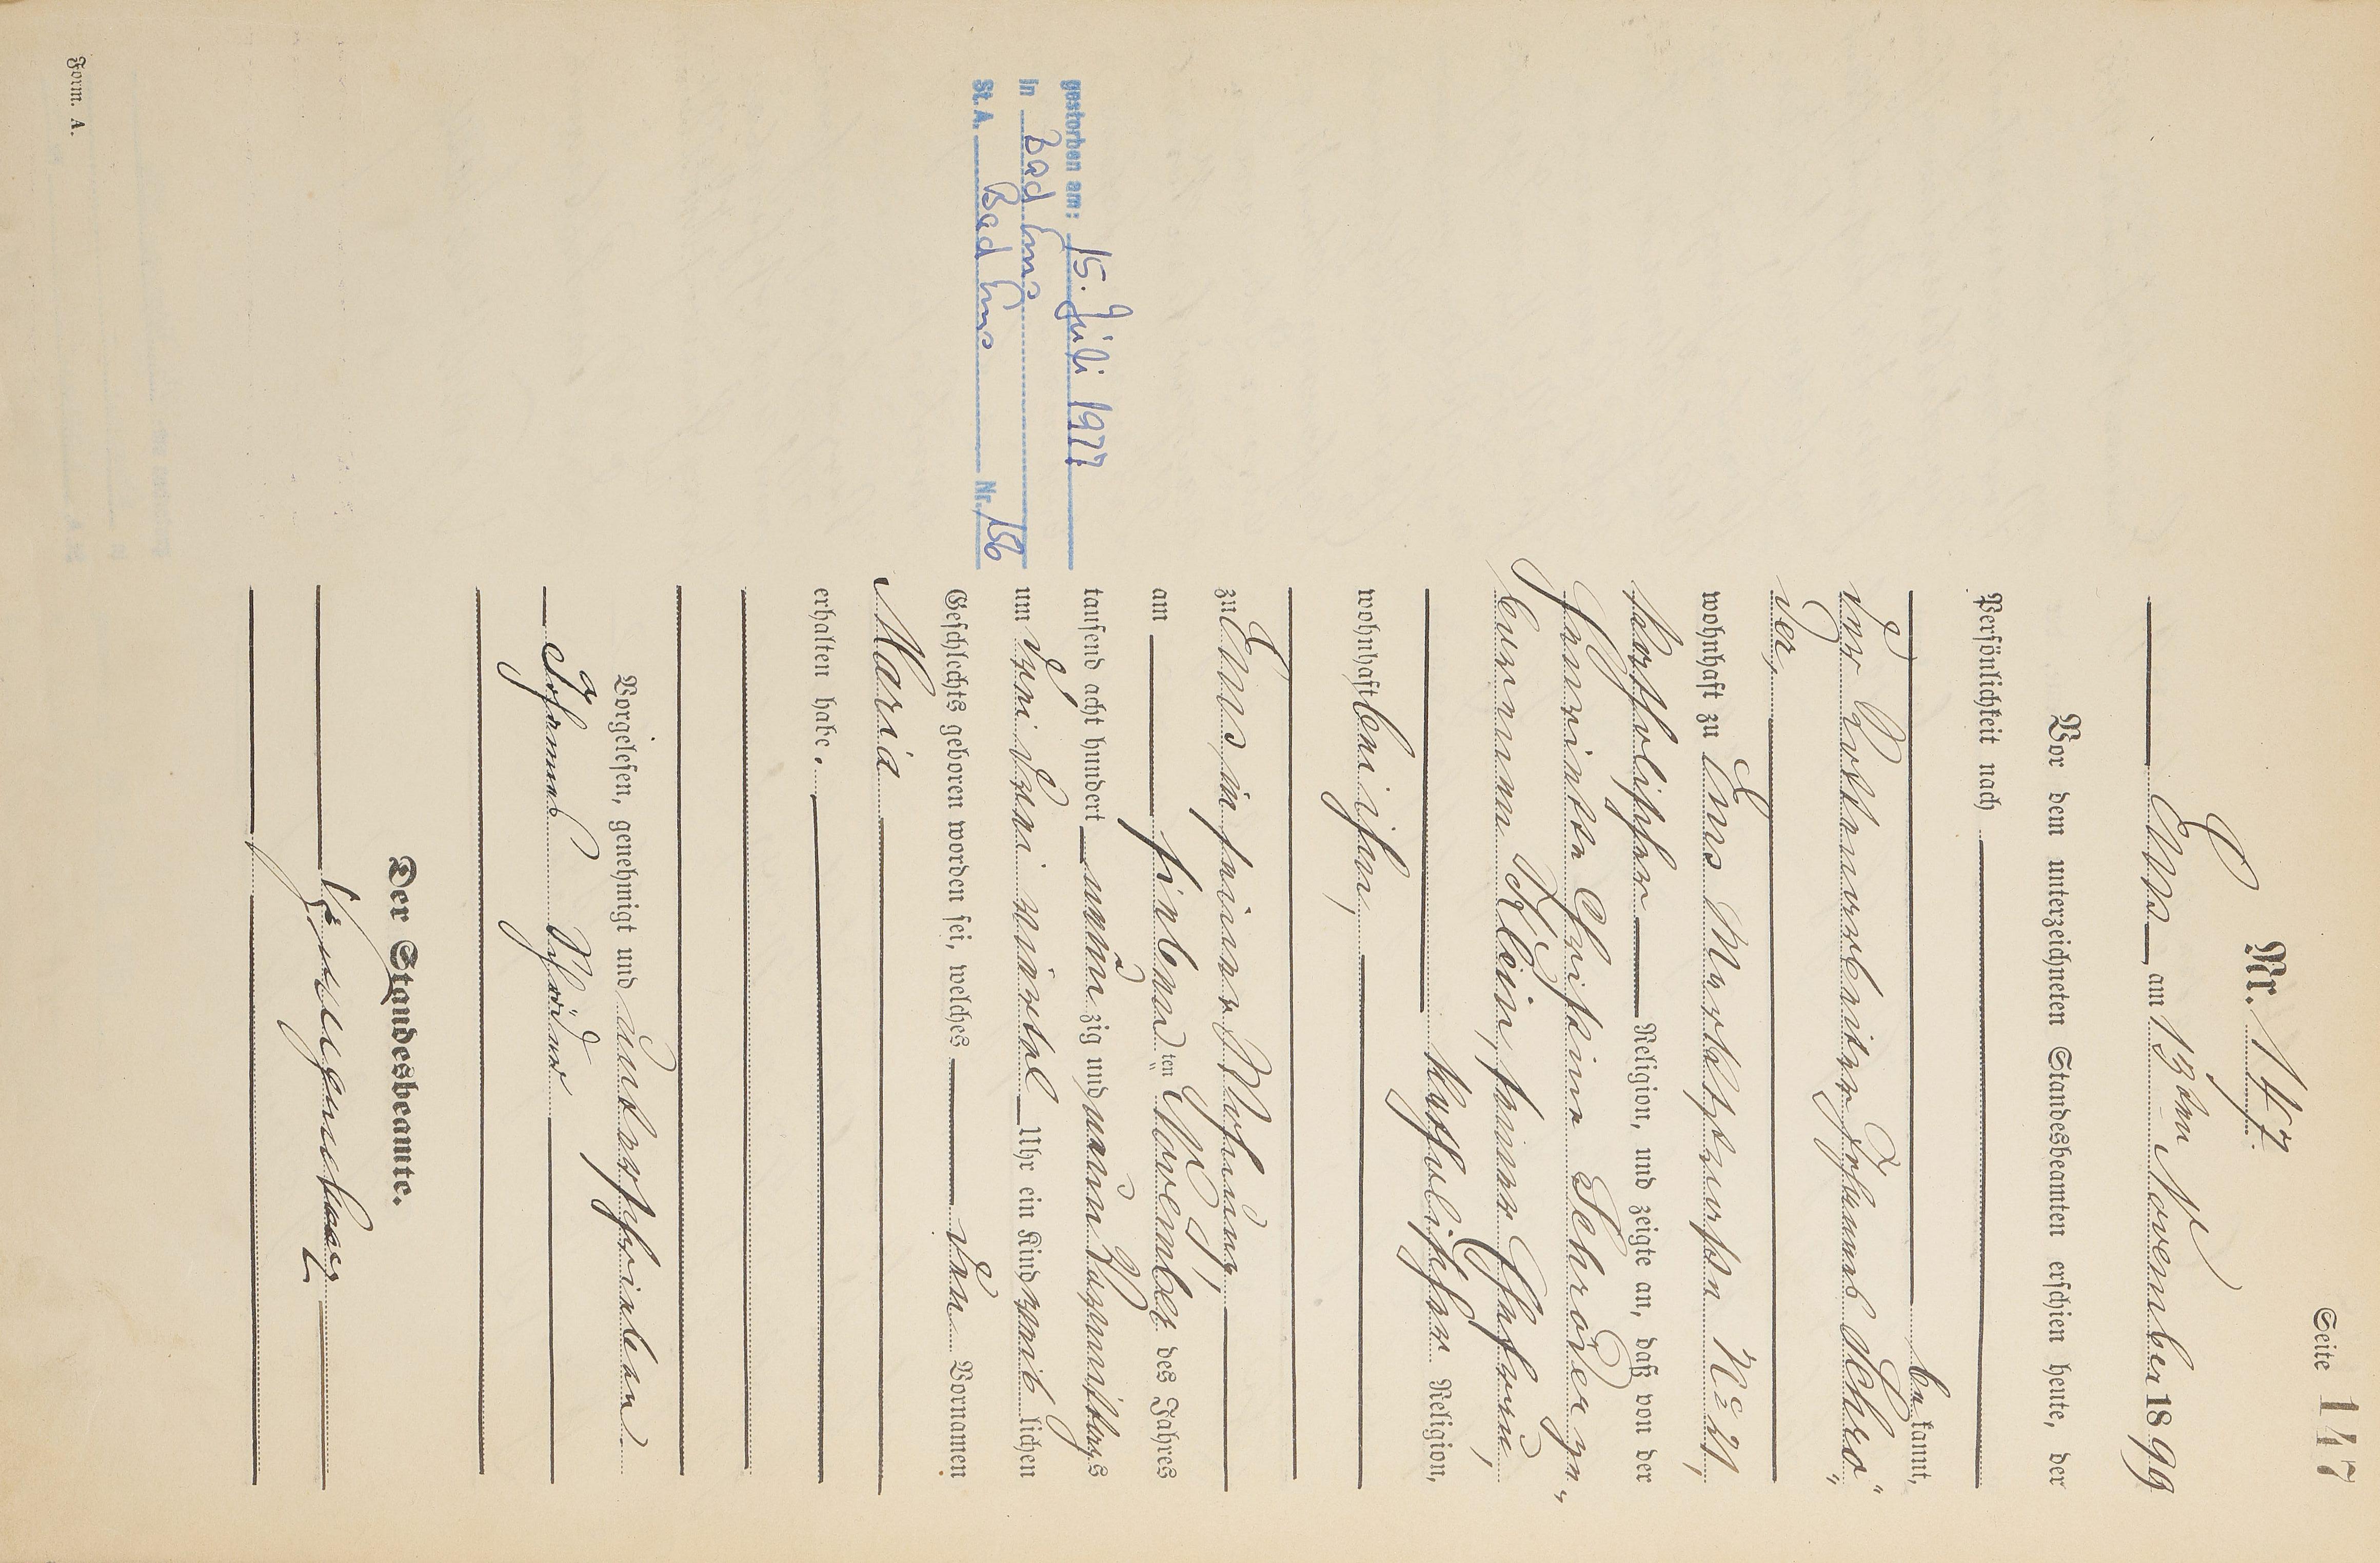 Seite 147
Nr. 147.
Ems am 13ten November 1899
Vor dem unterzeichneten Standesbeamten erschien heute, der
Persönlichkeit nach
bekannt,
der Johannes Schrö„
der,
wohnhaft zu Ems Marktstraße No 21,
katholischer Religion, und zeigte an, daß von der
Henriette Christine Schröder ge„
borenen Klein, seiner Ehefrau,
katholischer Religion,
wohnhaft bei ihm,
zu Ems, in seiner Wohnung,
am siebenten November des Jahres
tausend acht hundert neunzig und neun Vormittags
um drei drei viertel Uhr ein Kind weiblichen
Geschlechts geboren worden sei, welches den Vornamen
Maria
erhalten habe.
Vorgelesen, genehmigt und unterschrieben
Johannes Schröder
Der Standesbeamte.
gestorben am: 15. Juli 1977
in Bad Ems
St. A. Bad Ems Nr. 156
Form. A.